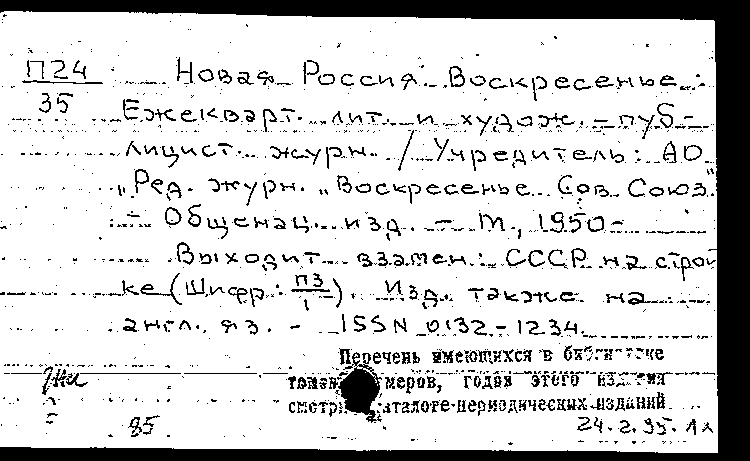 П24
35
Новая Россия. Воскресенье. :
Ежекварт. лит. и худож. – пуб-
лицист. журн. / Учредитель: АО
„Ред. журн. „Воскресенье Сов. Союз"
– Общенац. изд. – М., 1950–
Выходит взамен: СССР на строй
ке (Шифр: П3/1). Изд. также на
англ. яз. – ISSN 0132-1234.
Перечень имеющихся в библиотеке
годов этого издания
периодических изданий
85
24.2.95.